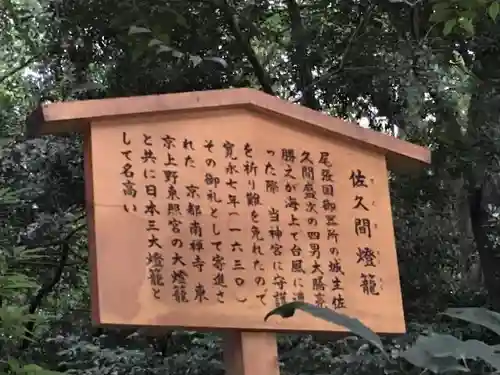 佐久間燈籠
さくまとうろう
尾張国御器所の城主佐
久間盛次の四男大膳亮
勝之が海上で台風に遭
った際 当神宮に守護
を祈り難を免れたので
寛永七年(一六三〇)
その御礼として寄進さ
れた 京都南禅寺 東
京上野東照宮の大燈籠
と共に日本三大燈籠と
して名高い